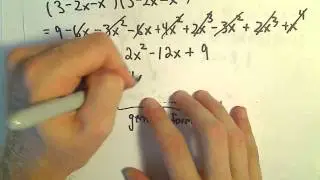 (3-2x-x²)(3-2x-x²)
= 9-6x-3x²-6x+4x²+2x³-3x²+2x³+x⁴
2x²-12x+9